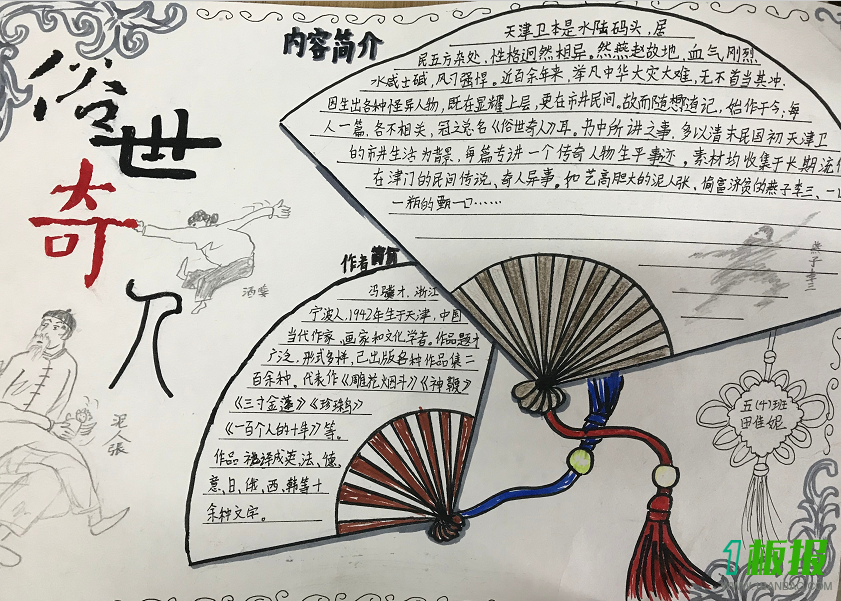 俗世
奇
人
内容简介
天津卫本是水陆码头,居
民五方杂处,性格迥然相异。然燕赵故地,血气刚烈
水咸土碱,风习强悍。近百余年来,举凡中华大灾大难,无不首当其冲,
因生出各种怪异人物,既在显耀上层,更在市井民间。故而随想随记,始作于今;每
人一篇,各不相关,冠之总名《俗世奇人》耳。书中所讲之事,多以清末民国初天津卫
的市井生活为背景,每篇专讲一个传奇人物生平事迹。素材均收集于长期流传
在津门的民间传说、奇人异事。如艺高胆大的泥人张,偷富济贫的燕子李三、一口
一瓶的甄一口……
酒婆
燕子李三
作者简介
冯骥才,浙江
宁波人,1942年生于天津,中国
当代作家、画家和文化学者。作品题才
广泛,形式多样,已出版各种作品集二
百余种,代表作《雕花烟斗》《神鞭》
《三寸金莲》《珍珠鸟》
《一百个人的十年》等。
作品被译成英、法、德、
意、日、俄、西、韩等十
余种文字。
泥人張
五(4)班
田佳妮
1板报